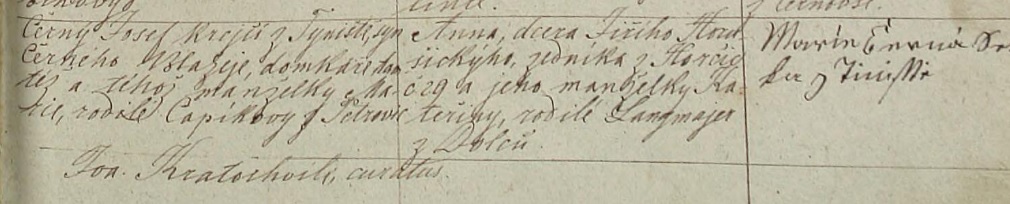 Černý Josef krejčí z Týniště, syn
Černého Blažeje, domkáře tam
též a téhož manželky Ma-
rie, rodilé Čapíkovy z Petrovic
Anna, dcera Jiřího Hora
šickýho, zedníka z Horčic
č 29 a jeho manželky Ka-
teřiny, rodilé Langmajer
z Dolců.
Marie Černá
z Tiniště
Jon. Kratochvil, curatus.